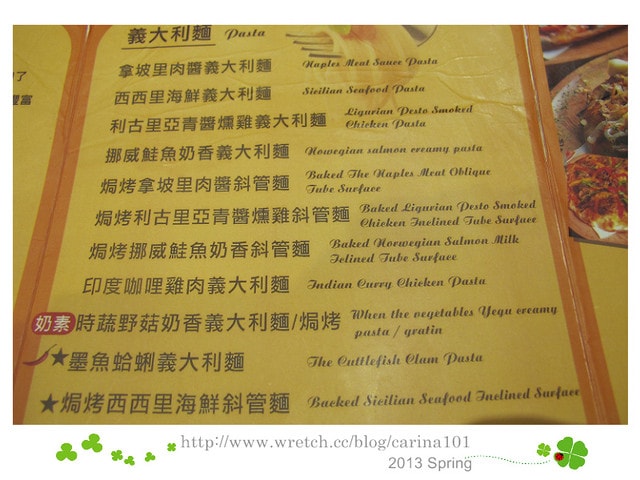 義大利麵 Pasta
拿坡里肉醬義大利麵 Naples Meat Sauce Pasta
西西里海鮮義大利麵 Sicilian Seafood Pasta
利古里亞青醬燻雞義大利麵 Ligurian Pesto Smoked
Chicken Pasta
挪威鮭魚奶香義大利麵 Nowegian salmon creamy pasta
焗烤拿坡里肉醬斜管麵 Baked The Naples Meat Oblique
Tube Surface
焗烤利古里亞青醬燻雞斜管麵 Baked Ligurian Pesto Smoked
Chicken Inclined Tube Surface
焗烤挪威鮭魚奶香斜管麵 Baked Norwegian Salmon Milk
Iclined Tube Surface
印度咖哩雞肉義大利麵 Indian Curry Chicken Pasta
奶素 時蔬野菇奶香義大利麵/焗烤 When the vegetables Yegu creamy
pasta / gratin
★墨魚蛤蜊義大利麵 The Cuttlefish Clam Pasta
★焗烤西西里海鮮斜管麵 Backed Sicilian Seafood Inclined Surface
了
豐富
http://www.wretch.cc/blog/carina101
2013 Spring